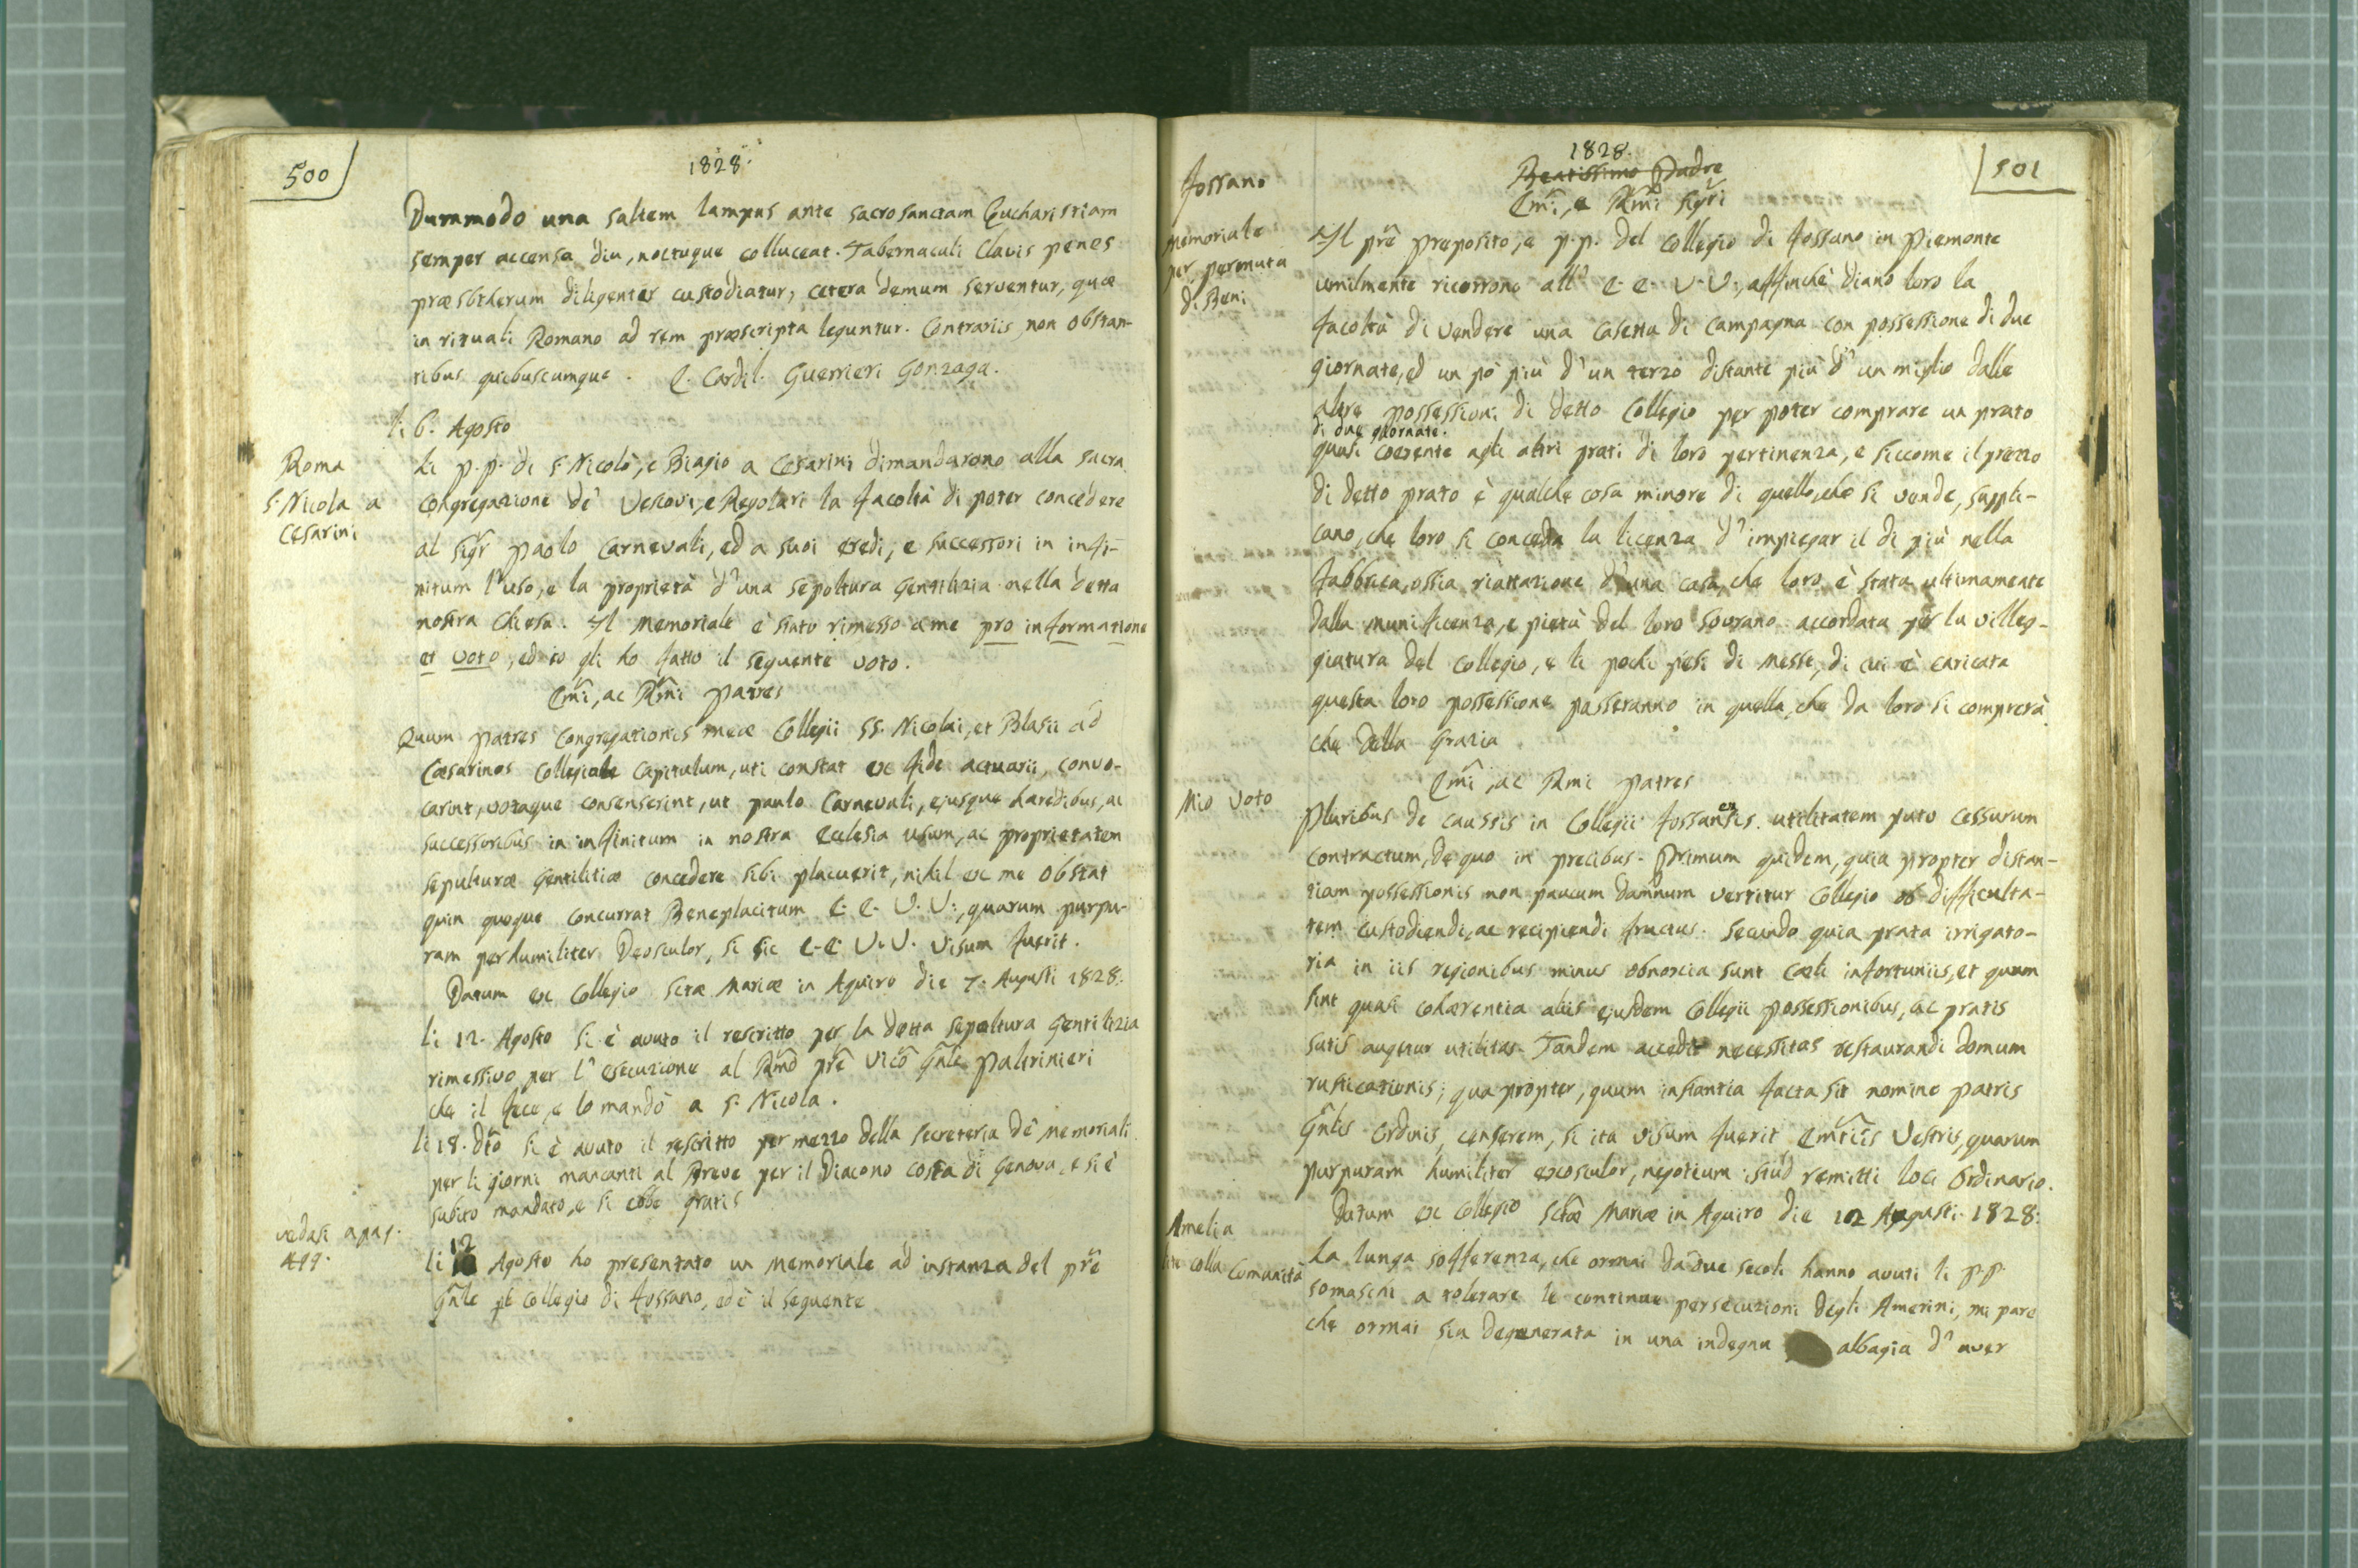 500
1828.
Dummodo una saltem lampas ante sacrosanctam Eucharistiam
semper accensa diu, noctuque colluceat. Tabernaculi Clavis penes
præsbiterum diligenter custodiatur, cetera demum serventur, quæ
in rituali Romano ad rem præscripta leguntur. Contrariis non obstan-
tibus quibuscumque. C. Cardil. Guerrieri Gonzaga.
li 6. Agosto
Roma
S. Nicola a
Cesarini
Li p.p. di S. Nicolò, e Biagio a Cesarini dimandarono alla sacra
Congregazione de' Vescovi, e Regolari la facoltà di poter concedere
al Sigr Paolo Carnevali, ed a suoi eredi, e successori in infi-
nitum l'uso, e la proprietà d'una sepoltura gentilizia nella detta
nostra Chiesa. Il Memoriale è stato rimesso a me pro informatione
et voto, ed io gli ho fatto il seguente voto.
Emi, ac Rmi Patres
Quum Patres Congregationis meæ Collegii SS. Nicolai, et Blasii ad
Cæsarinos Collegiale Capitulum, uti constat ex fide actuarii, convo-
carint, votaque consenserint, ut Paulo Carnevali, ejusque hæredibus, ac
successoribus in infinitum in nostra Ecclesia usum, ac proprietatem
sepulturæ gentilitiæ concedere sibi placuerit, nihil ex me obstat
quin quoque concurrat Beneplacitum E. E. V. V., quarum purpu-
ram perhumiliter deosculor, si sic E. E. V. V. visum fuerit.
Datum ex Collegio Sctæ Mariæ in Aquiro die 7. Augusti 1828.
li 12. Agosto si è avuto il rescritto per la detta sepoltura gentilizia
rimessivo per l'esecuzione al Rmo pre Vico Gnle Paltrinieri
che il fece, e lo mandò a S. Nicola.
li 18. dto si è avuto il rescritto per mezzo della Secreteria de' Memoriali
per li giorni mancanti al Breve per il Diacono Costa di Genova, e si è
subito mandato, e si ebbe gratis
vedasi a pag.
499.
li 12 Agosto ho presentato un Memoriale ad instanza del pre
Gnle pel Collegio di Fossano, ed è il seguente
501
1828.
Beatissimo Padre
Emi, e Rmi Sigri
Fossano
Memoriale
per permuta
di Beni
Il pre Preposito, e p.p. del Collegio di Fossano in Piemonte
umilmente ricorrono all' E. E. V. V., affinchè diano loro la
facoltà di vendere una casetta di campagna con possessione di due
giornate, ed un pò più d'un terzo distante più d'un miglio dalle
altre possessioni di detto Collegio per poter comprare un prato
di due giornate.
quasi coerente agli altri prati di loro pertinenza, e siccome il prezzo
di detto prato è qualche cosa minore di quello, che si vende, suppli-
cano, che loro si conceda la licenza d'impiegar il di più nella
fabbrica, ossia riattazione d'una casa, che loro è stata ultimamente
dalla munificenza, e pietà del loro Sovrano accordata per la villeg-
giatura del Collegio, e li pochi pesi di Messe, di cui è caricata
questa loro possessione passeranno in quella, che da loro si comprerà
che della Grazia
Emi, ac Rmi Patres
Mio Voto
Pluribus de caussis in Collegii Fossanensis utilitatem puto cessurum
contractum, de quo in precibus. Primum quidem, quia propter distan-
tiam possessionis non paucum damnum vertitur Collegio ob difficulta-
tem custodiendi, ac recipiendi fructus. Secundo quia prata irrigato-
ria in iis regionibus minus obnoxia sunt cæli infortuniis, et quum
sint quasi cohærentia aliis ejusdem Collegii possessionibus, ac pratis
satis augetur utilitas. Tandem accedit necessitas restaurandi domum
rusticationis; quapropter, quum instantia facta sit nomine Patris
Gnlis Ordinis, censerem, si ita visum fuerit Emtiis Vestris, quarum
purpuram humiliter exosculor, negotium istud remitti loci Ordinario.
Datum ex Collegio Sctæ Mariæ in Aquiro die 12 Augusti 1828.
Amelia
lite colla Comunità
La lunga sofferenza, che ormai da due secoli hanno avuti li p.p.
Somaschi a tolerare le continue persecuzioni degli Amerini, mi pare
che ormai sia degenerata in una indegna albagia d'aver